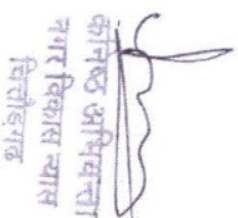 कनिष्ठ अभियन्ता
नगर विकास न्यास
चित्तौड़गढ़